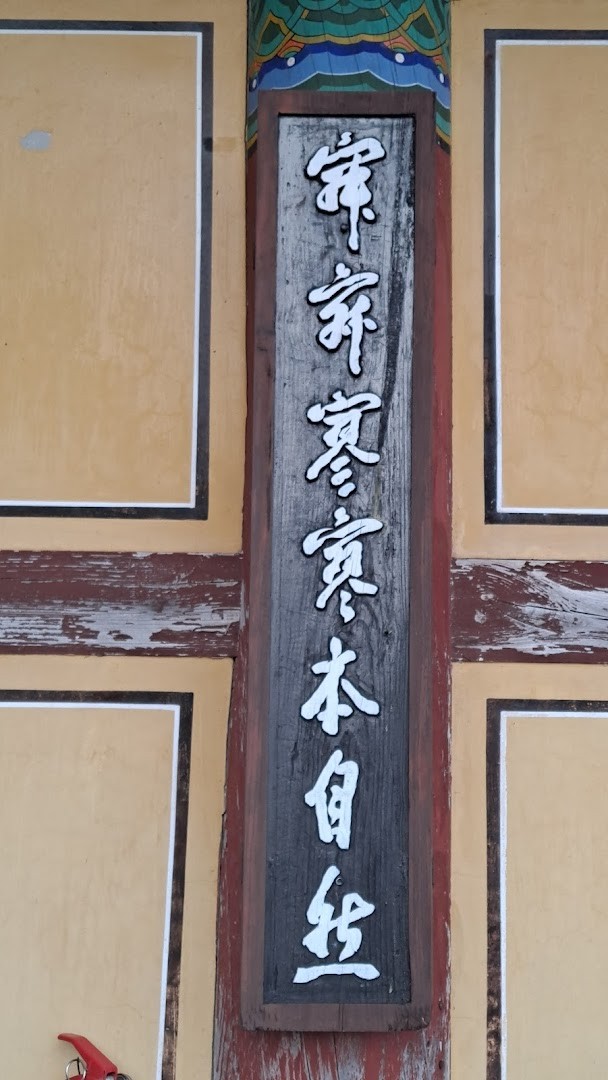 寂寂寥寥本自然